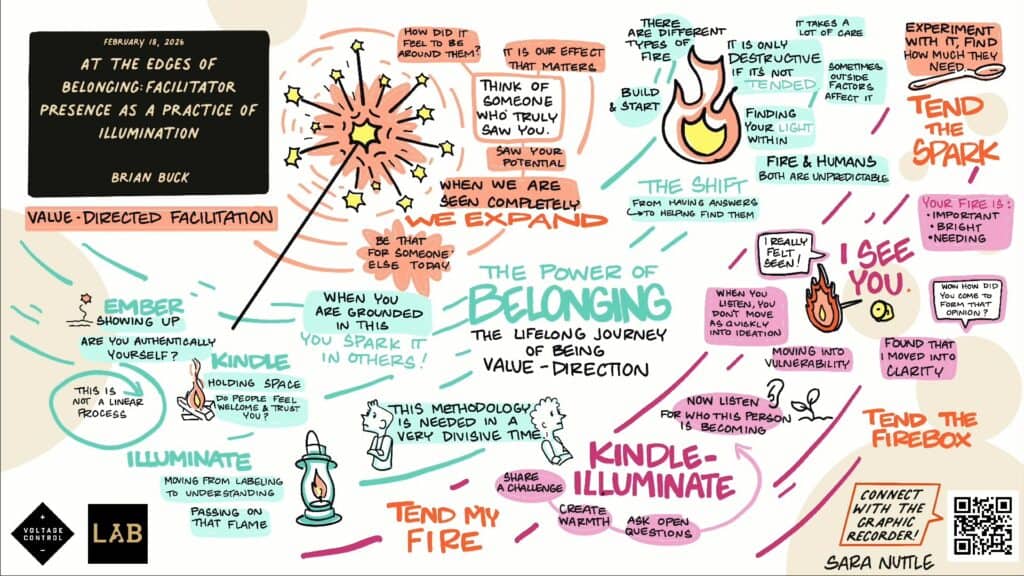 FEBRUARY 18, 2026
AT THE EDGES OF
BELONGING: FACILITATOR
PRESENCE AS A PRACTICE OF
ILLUMINATION
BRIAN BUCK
VALUE-DIRECTED FACILITATION
HOW DID IT
FEEL TO BE
AROUND THEM?
IT IS OUR EFFECT
THAT MATTERS
THINK OF
SOMEONE
WHO TRULY
SAW YOU.
SAW YOUR
POTENTIAL
WHEN WE ARE
SEEN COMPLETELY
WE EXPAND
BE THAT
FOR SOMEONE
ELSE TODAY
THERE
ARE DIFFERENT
TYPES OF
FIRE
BUILD
& START
IT IS ONLY
DESTRUCTIVE
IF IT'S NOT
TENDED.
IT TAKES A
LOT OF CARE
SOMETIMES
OUTSIDE
FACTORS
AFFECT IT
FINDING
YOUR LIGHT
WITHIN
FIRE & HUMANS
BOTH ARE UNPREDICTABLE
THE SHIFT
FROM HAVING ANSWERS
TO HELPING FIND THEM
EXPERIMENT
WITH IT, FIND
HOW MUCH THEY
NEED
TEND
THE
SPARK
YOUR FIRE IS:
• IMPORTANT
• BRIGHT
• NEEDING
I REALLY
FELT
SEEN!
I SEE
YOU.
WOW HOW DID
YOU COME TO
FORM THAT
OPINION?
WHEN YOU
LISTEN, YOU
DON'T MOVE
AS QUICKLY
INTO IDEATION
MOVING INTO
VULNERABILITY
FOUND THAT
I MOVED INTO
CLARITY
NOW LISTEN
FOR WHO THIS PERSON
IS BECOMING
TEND THE
FIREBOX
THE POWER OF
BELONGING
THE LIFELONG JOURNEY
OF BEING
VALUE-DIRECTION
EMBER
SHOWING UP
ARE YOU AUTHENTICALLY
YOURSELF?
WHEN YOU
ARE GROUNDED
IN THIS
YOU SPARK IT
IN OTHERS!
KINDLE
HOLDING SPACE
DO PEOPLE FEEL
WELCOME & TRUST
YOU?
THIS IS
NOT A LINEAR
PROCESS
ILLUMINATE
MOVING FROM LABELING
TO UNDERSTANDING
PASSING ON
THAT FLAME
THIS METHODOLOGY
IS NEEDED IN A
VERY DIVISIVE TIME
TEND MY
FIRE
KINDLE-
ILLUMINATE
SHARE
A CHALLENGE
CREATE
WARMTH
ASK OPEN
QUESTIONS
CONNECT
WITH THE
GRAPHIC
RECORDER!
SARA NUTTLE
VOLTAGE
CONTROL
LAB